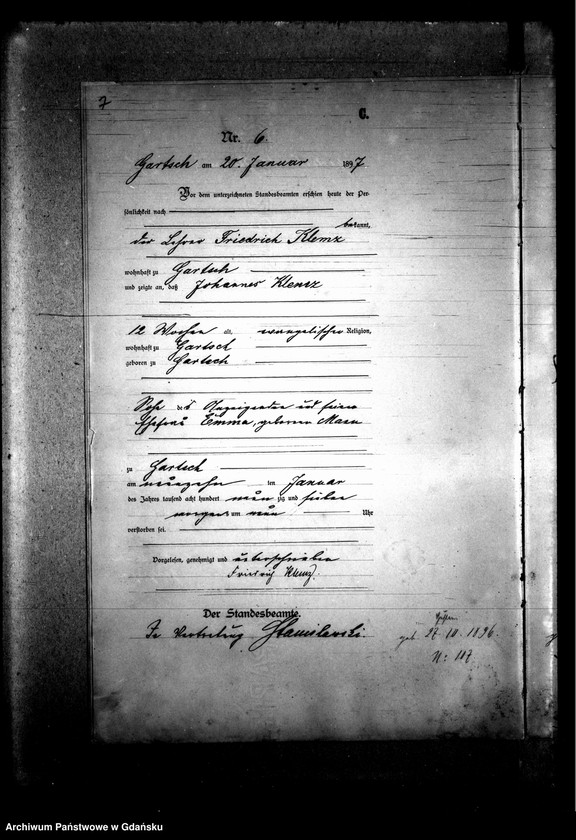 7
C.
Nr. 6
Gartsch am 20. Januar 1897
Vor dem unterzeichneten Standesbeamten erschien heute der Per-
sönlichkeit nach
bekannt,
der Lehrer Friedrich Klemz
wohnhaft zu Gartsch
und zeigte an, daß Johannes Klemz
12 Wochen alt, evangelischer Religion,
wohnhaft zu Gartsch
geboren zu Gartsch
Sohn des Anzeigenden und seiner
Ehefrau Emma, geborenen Mann
zu Gartsch
am neunzehn ten Januar
des Jahres tausend acht hundert neun zig und sieben
morgens um neun Uhr
verstorben sei.
Vorgelesen, genehmigt und unterschrieben
Friedrich Klemz.
Der Standesbeamte.
In Vertretung Stanislewski.
geb 27.10.1896.
N: 117
Archiwum Państwowe w Gdańsku